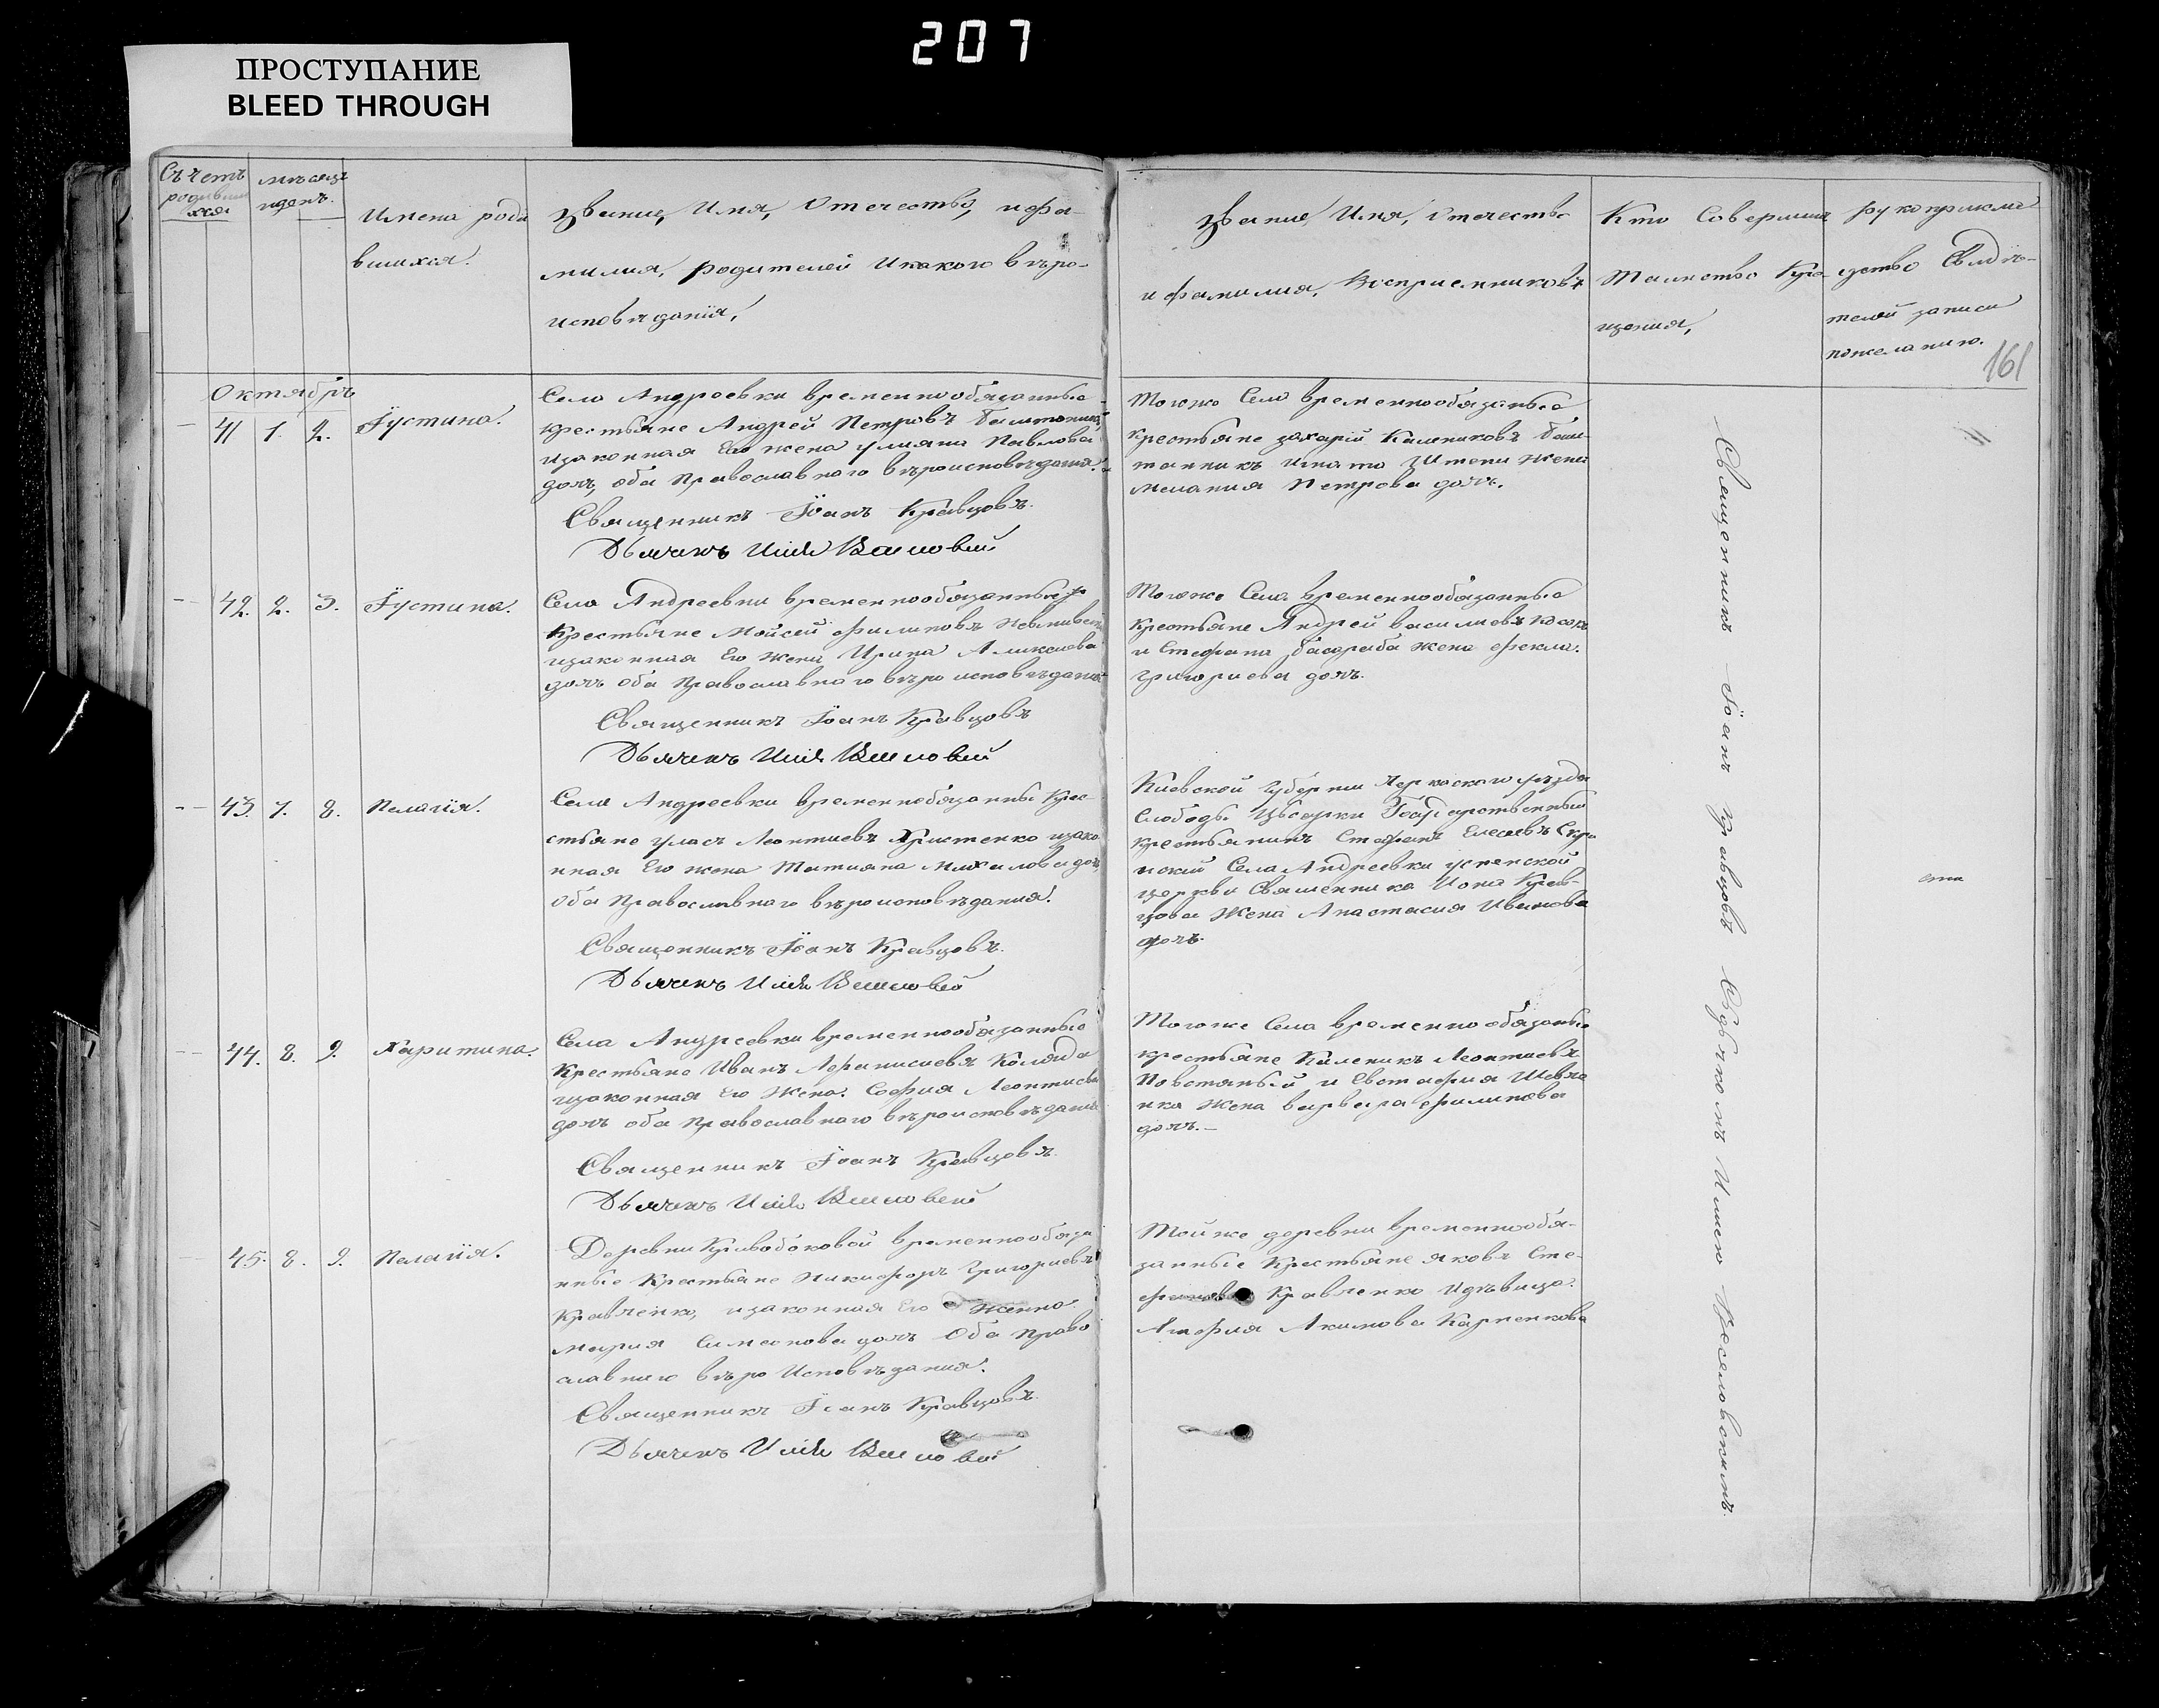 207
ПРОСТУПАНИЕ
BLEED THROUGH
Съчетъ
родивши
хся
мѣсяцъ
идень.
Имена роди
вшихся.
Звание, Имя, Отечество, ифа-
милия, родителей Икакого вѣро-
исповѣдания,
Звание, Имя, Отечество
и фамилия, Восприемниковъ
Кто Совершил
Таинство Кре-
щения,
рукоприкла
дство Свидѣ-
телей записи
пожеланию.
161
Октябрь
41 1. 2. Іустина.
Села Андреевки временнообязанные
крестьяне Андрей Петровъ
изаконная Его жена улияна Павлова
дочь, оба Православного вѣроисповѣдания.
Священникъ Іоанъ Кравцовъ.
Дьячекъ
Тогоже Села временнообязаные
крестьяне захарій Калениковъ Баш-
танникъ жена
мелания Петрова дочь.
42. 2. 3. Іустина.
Села Андреевки временнообязанные
Крестьяне Мойсей филиповъ
изаконная Его жена Ирина Аликсиева
дочь оба Православнаго вѣро исповѣдания
Священникъ Іоанъ Кравцовъ
Дьячекъ
Тогоже Села временнообязанные
крестьяне Андрей василиевъ
и Стефана жена фекла.
григориева дочь.
43. 7. 8. Пелагія.
Села Андреевки временнобязанные Крес-
стьяне уласъ Леонтиевъ Христенко изако
нная Его жена Татияна Михаилова дочь,
оба Православного вѣроисповѣдания.
Священникъ Іоанъ Кравцовъ.
Дьячекъ
Киевской Губернии Черкаского уѣзда
Слободы Государственный
крестьянинъ Стефанъ Елесеевъ
Села Андреевки успенской
церкви Священника Иона Крав-
цова Жена Анастасия Иванова
дочь.
44. 8. 9. Харитина.
Села Андреевки временнообязанные
Крестьяне Иванъ Афанасиевъ Коляда
изаконная Его Жена. София Леонтиева
дочь оба Православнаго вѣроисповѣдания
Священникъ Іоанъ Кравцовъ.
Дьячекъ
Тогоже Села временно обязаные
крестьяне Каленикъ Леонтиевъ
и Евстафия Шевче
нка Жена варвара филипова
дочь.—
45. 8. 9. Пелагія.
Деревни Кривобоковой временнообяза
нные Крестьяне Никифоръ Григориевъ
Кравченко, изаконная Его Женна
мария Симеонова дочь Оба Право
славного вѣро Исповѣдания.
Священникъ Іоанъ Кравцовъ.
Дьячекъ
Тойже деревни временнообя-
занные Крестьяне яковъ Сте-
фановъ Кравченко Идѣвица.
Агафия Акимова Карпенкова
Священникъ Іоанъ Кравцовъ Съдьячкомъ Илиею Веселовскимъ.